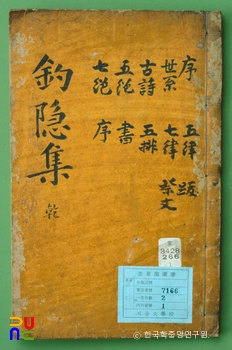 序 五律 跋
世系 七律 祭文
古詩 五排
五絶 書
七絶 序
釣隐集 乾
3428
266
7166
2
1
서울大學校
© 한국학중앙연구원